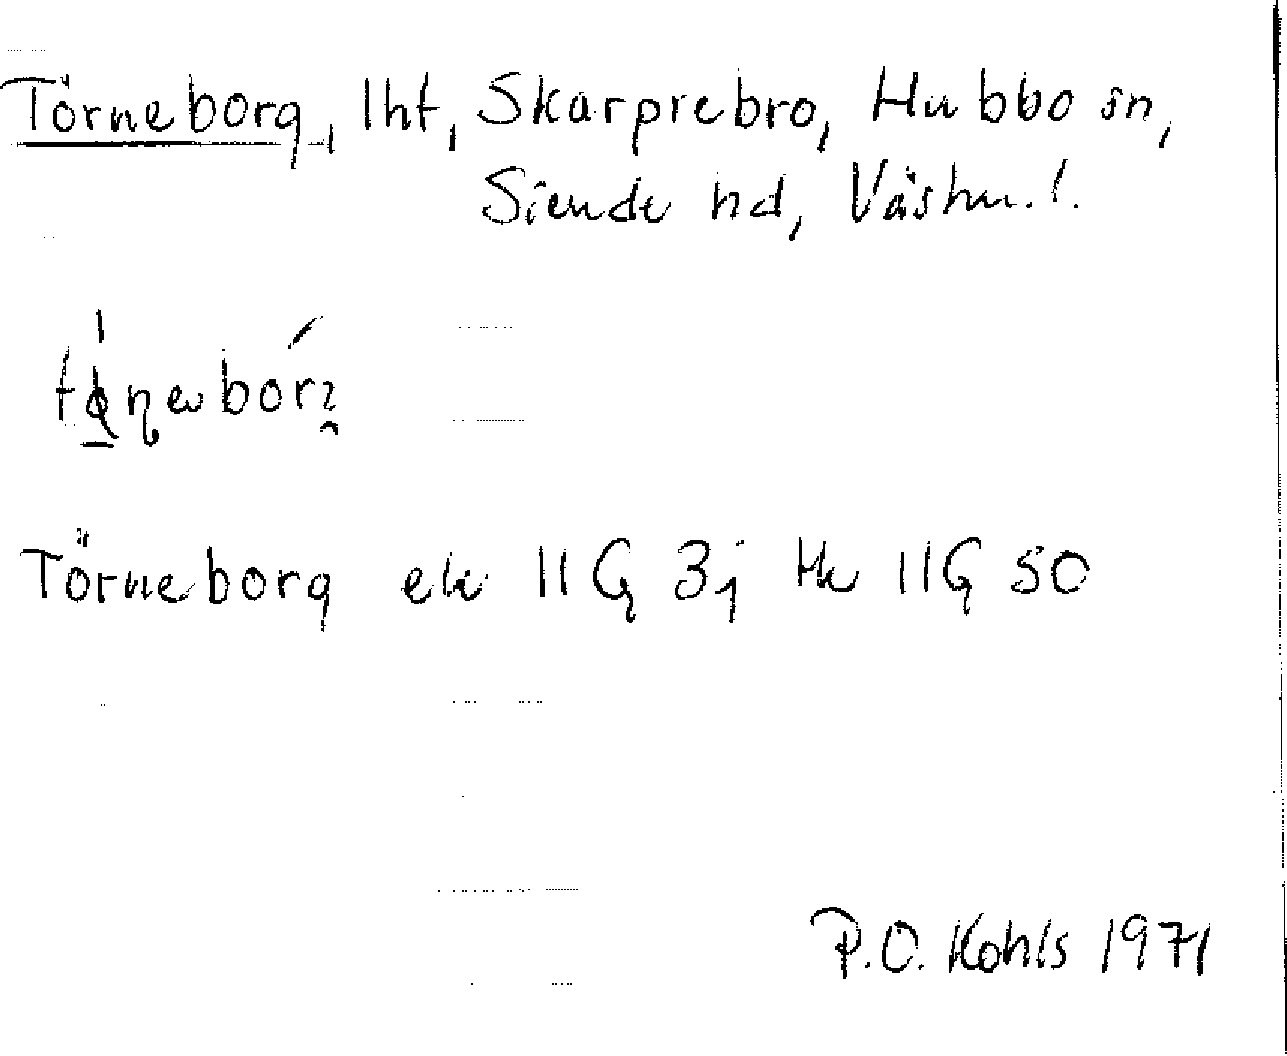 Törneborg, lht, Skarprebro, Hubbo sn,
Siende hd, Västm. l.
Törneborg ek 11G 3j Hk 11G SO
P.O. Kohls 1971